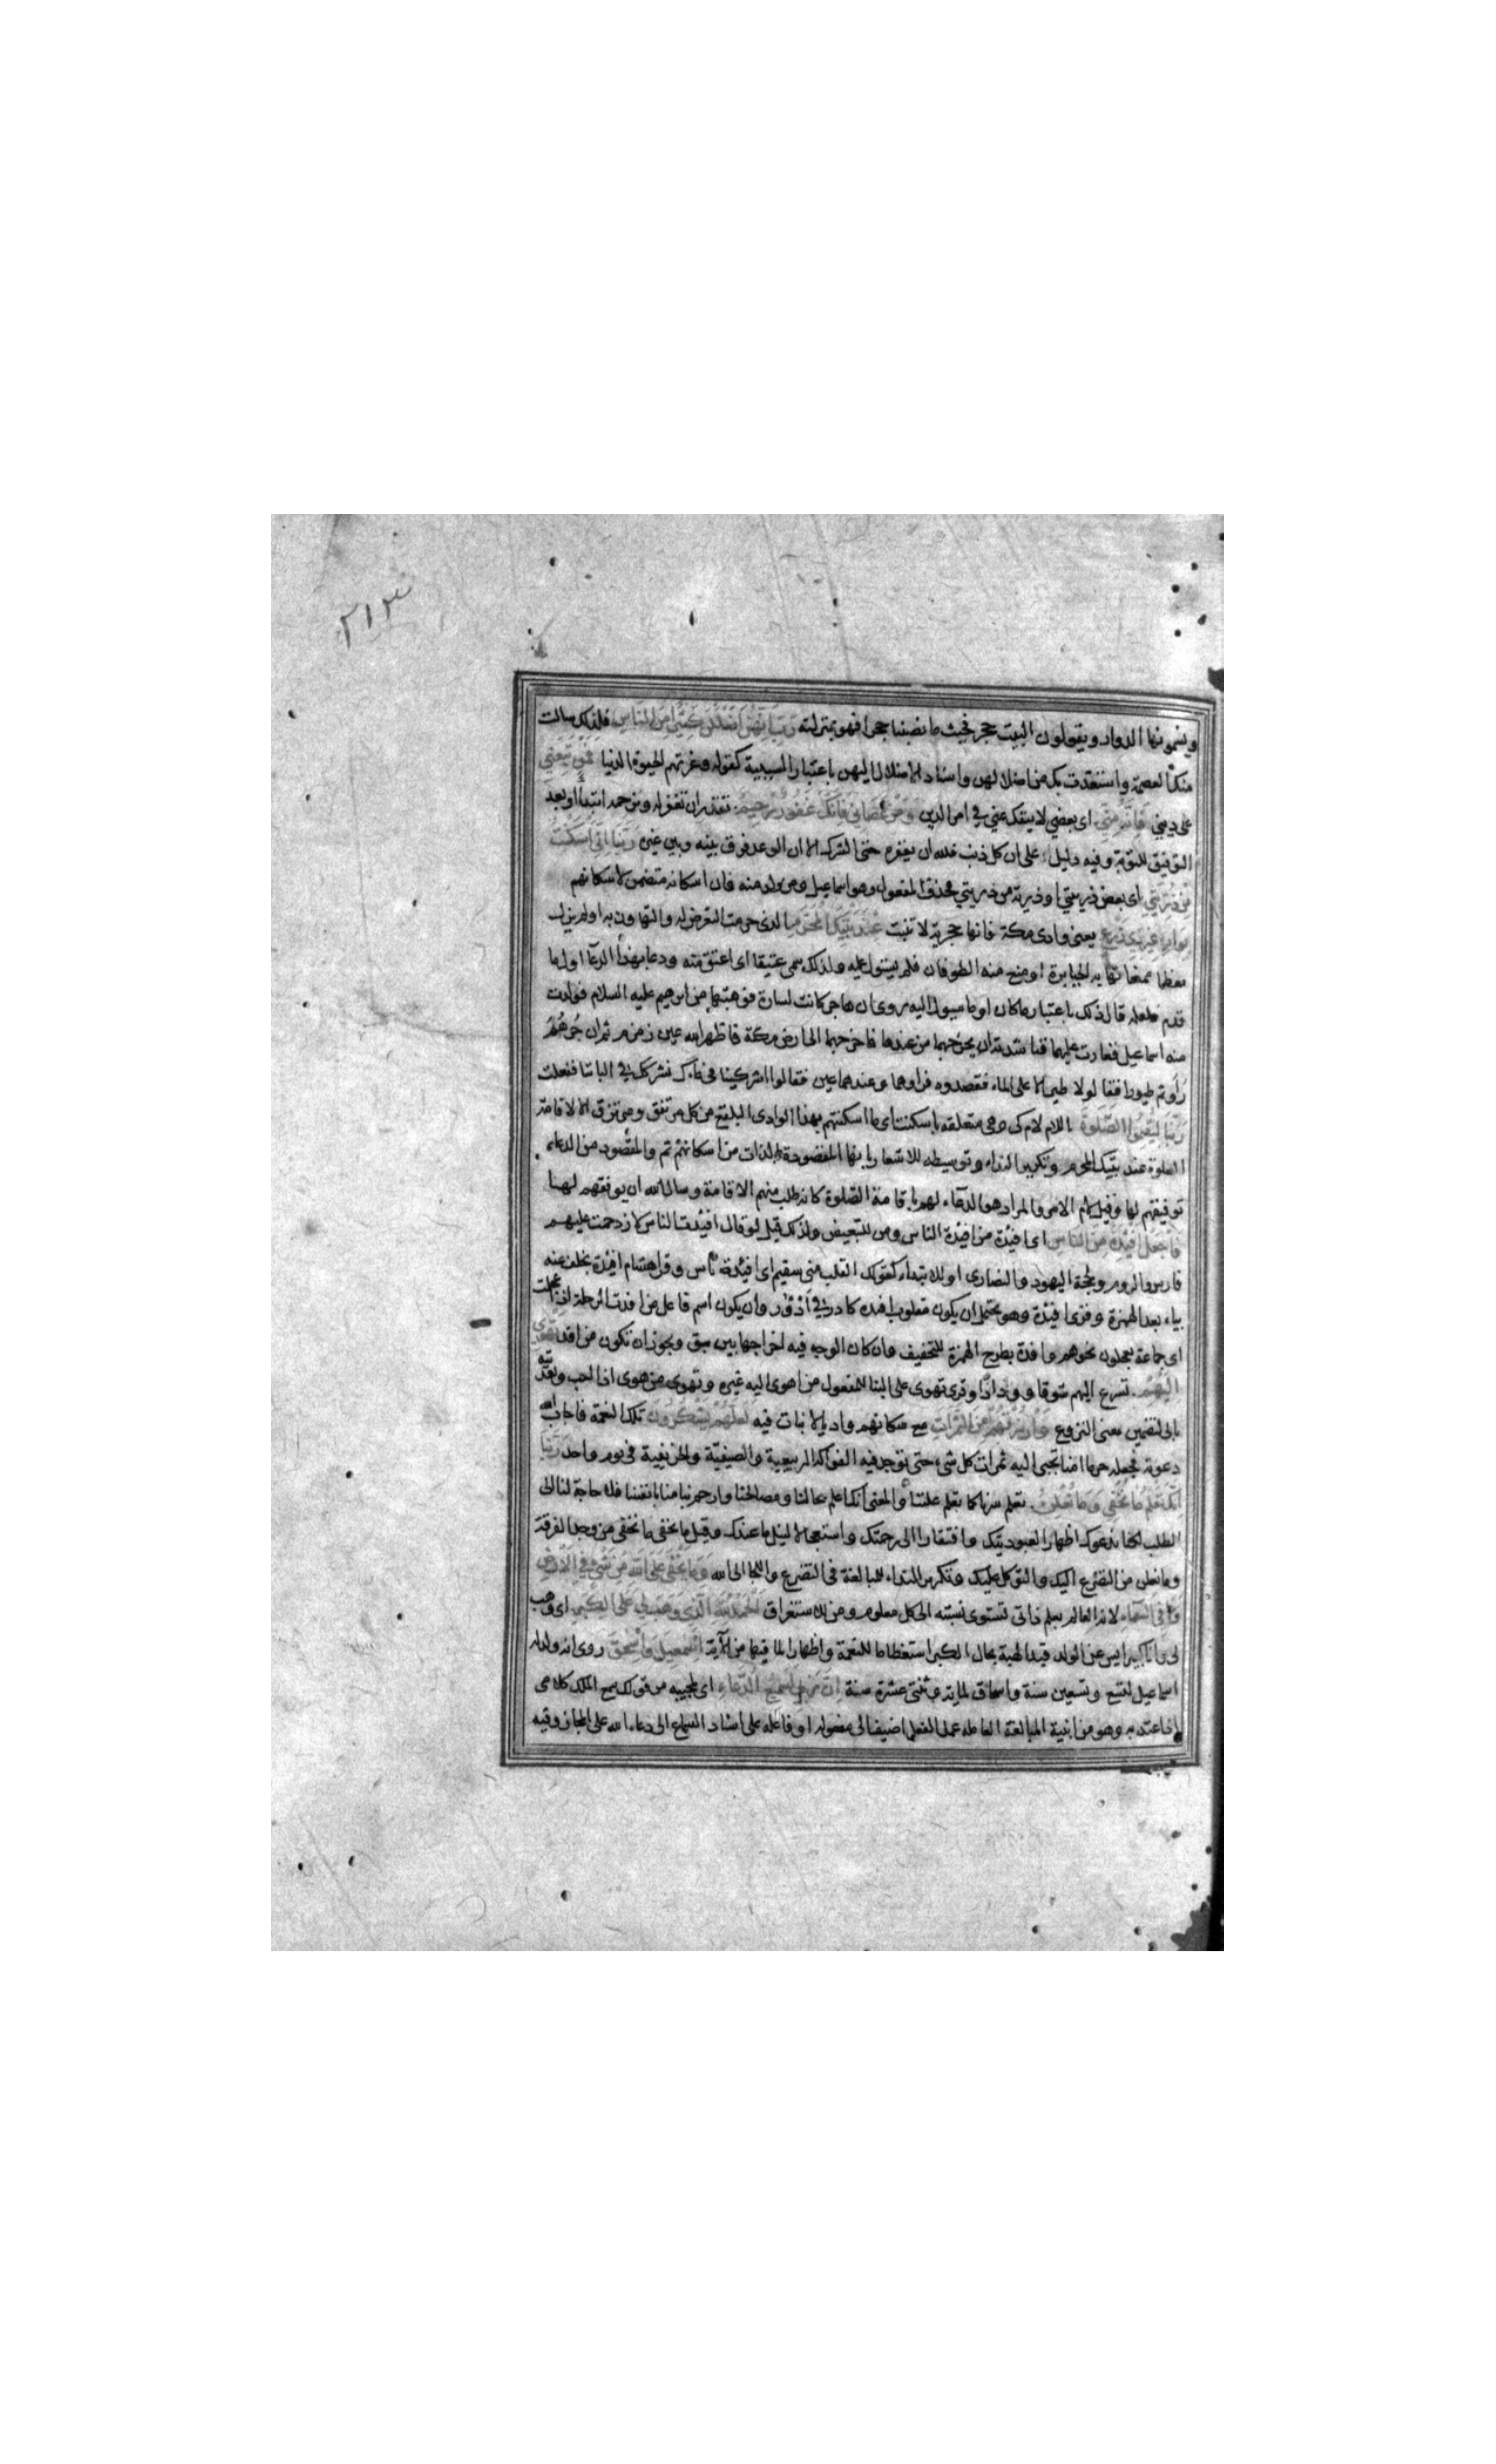 ٢١٣
ويسمونها الدوار ويقولون البيت حجر فحيث ما نصبنا حجرا فهو بمنزلته رَبِّ اِنَّهُنَّ اَضْلَلْنَ كَثِيْرًا مِنَ النَّاسِ فلذلك سالت
منك العصمة واستعذت بك من اضلالهن واسناد الاضلال اليهن باعتبار السببية كقوله وغرتهم الحيوة الدنيا فَمَنْ تَبِعَنِي
على ديني فَاِنَّهُ مِنِّي اى بعضي لا ينفك عني في امر الدين وَمَنْ عَصَانِي فَاِنَّكَ غَفُورٌ رَحِيمٌ تقدر ان تغفر له وترحمه ابتداً او بعد
التوفيق للتوبة وفيه دليل على ان كل ذنب فلله ان يغفره حتى الشرك الا ان الوعد فرق بينه وبين غيره رَبَّنَا اِنِّي اَسْكَنْتُ
مِنْ ذُرِّيَّتِي اى بعض ذريتي او ذرية من ذريتي فحذف المفعول وهو اسماعيل ومن ولد منه فان اسكانه متضمن لاسكانهم
بِوَادٍ غَيْرِ ذِي زَرْعٍ يعنى وادى مكة فانها حجرية لا تنبت عِنْدَ بَيْتِكَ الْمُحَرَّمِ الذى حرمت التعرض له والتهاون به او لم يزل
معظما ممنعا تهابه الجبابرة او منع منه الطوفان فلم يستول عليه ولذلك سمى عتيقا اى اعتق منه ودعا بهذا الدعآ اول ما
قدم فلعله قال ذلك باعتبار ما كان او ما سيول اليه روى ان هاجر كانت لسارة فوهبتها من ابرهيم عليه السلام فولدت
منه اسماعيل فغارت عليهما فناشدته ان يخرجهما من عندها فاخرجهما الى ارض مكة فاظهر الله عين زمزم ثم ان جُرْهُمَ
رَأوا ثم طيورا فقالوا لا طير الا على الماء فقصدوه فراوهما وعندهما عين فقالوا اشركينا في مائك نشركك في الباننا ففعلت
رَبَّنَا لِيُقِيمُوا الصَّلٰوةَ اللام لام كى وهى متعلقه باسكنت اى ما اسكنتهم بهذا الوادى البلقع من كل مرتفق ومرتزق الا لاقامة
الصلوة عند بيتك المحرم وتكرير النداء وتوسيطه للاشعار بانها المقصودة بالذات من اسكانهم ثم والمقصود من الدعاء
توفيقهم لها وقيل لام الامر والمراد هو الدعآء لهم باقامة الصلوة كانه طلب منهم الاقامة وسال الله ان يوفقهم لهـا
فَاجْعَلْ اَفْئِدَةً مِنَ النَّاسِ اى افئدة من افئدة الناس ومن للتبعيض ولذلك قيل لو قال افئدت الناس لازدحمت عليهم
فارس والروم ولحجة اليهود والنصارى او للابتداء كقولك القلب منى سقيم اى افئدة ناس وقرا هشام افئيدة بخلف عنه
بياء بعد الهمزة وقرى افئدة وهو يحتمل ان يكون مقلوب افئدة كادر في اَدْؤُر وان يكون اسم فاعل من افدت الرحلة اذا عجلت
اى جماعة يعجلون نحوهم وافدة بطرح الهمزة للتخفيف وان كان الوجه فيه اخراجها بين بين ويجوز ان تكون من افد تَهْوِي
اِلَيْهِمْ تسرع اليهم شوقا وودادًا وقرى تهوى على البنا للمفعول من اهوى اليه غيره وتهوى من هوى اذا احب وتعديته
بالى لتضمين معنى النزوع وَارْزُقْهُمْ مِنَ الثَّمَرَاتِ مع سكانهم واديا لا نبات فيه لَعَلَّهُمْ يَشْكُرُونَ تلك النعمة فاجاب الله
دعوته فجعله حرما امنا تجبى اليه ثمرات كل شيء حتى توجد فيه الفواكه الربيعية والصيفية والخريفية في يوم واحد رَبَّنَا
اِنَّكَ تَعْلَمُ مَا نُخْفِي وَمَا نُعْلِنُ تعلم سرنا كما تعلم علننا والمعنى انك اعلم بحالنا ومصالحنا وارحم بنا منا بانفسنا فلا حاجة لنا الى
الطلب لكنا ندعوك اظهارا لعبوديتك وافتقارا الى رحمتك واستعجالا لنيل ما عندك وقيل ما نخفى ما نخفى من وجد الفرقة
وما نعلن من التضرع اليك والتوكل عليك وتكرير النداء للمبالغة فى التضرع واللجا الى الله وَمَا يَخْفَى عَلَى اللهِ مِنْ شَيْءٍ فِي الْاَرْضِ
وَلَا فِي السَّمَاءِ لانه العالم بعلم ذاتى تستوى نسبته الى كل معلوم ومن للاستغراق اَلْحَمْدُ لِلّٰهِ الَّذِي وَهَبَ لِي عَلَى الْكِبَرِ اى وهب
لى وانا كبير ايس عن الولد قيد الهبة بحال الكبر استعظاما للنعمة واظهارا لما فيها من الآية اِسْمٰعِيلَ وَاِسْحٰقَ روى انه ولد له
اسماعيل لتسع وتسعين سنة واسحاق لماية وثنتى عشرة سنة اِنَّ رَبِّي لَسَمِيعُ الدُّعَاءِ اى لمجيبه من قولك سمع الملك كلامى
اذا اعتد به وهو من ابنية المبالغة العاملة عمل الفعل اضيف الى مفعوله او فاعله على اسناد السماع الى دعاء الله على المجاز وفيه